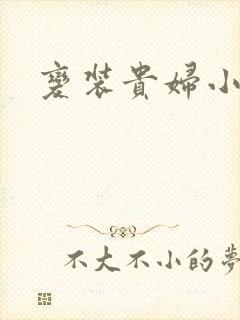 變裝貴婦小
不大不小的夢